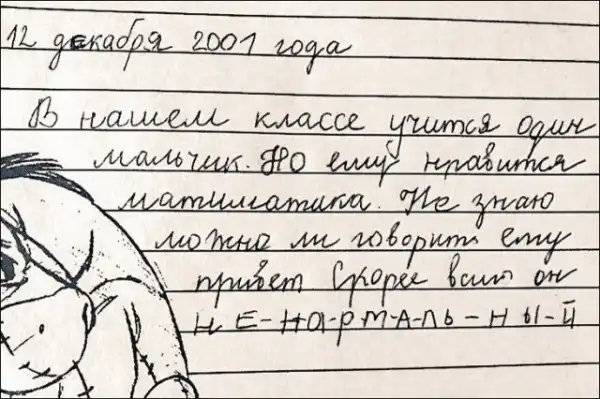 12 декабря 2001 года
В нашем классе учится один
мальчик. Но ему нравится
матиматика. Не знаю
можно ли говорить ему
привет Скорее всиго он
НЕ-НА-РМ-А-ЛЬ-НЫ-Й